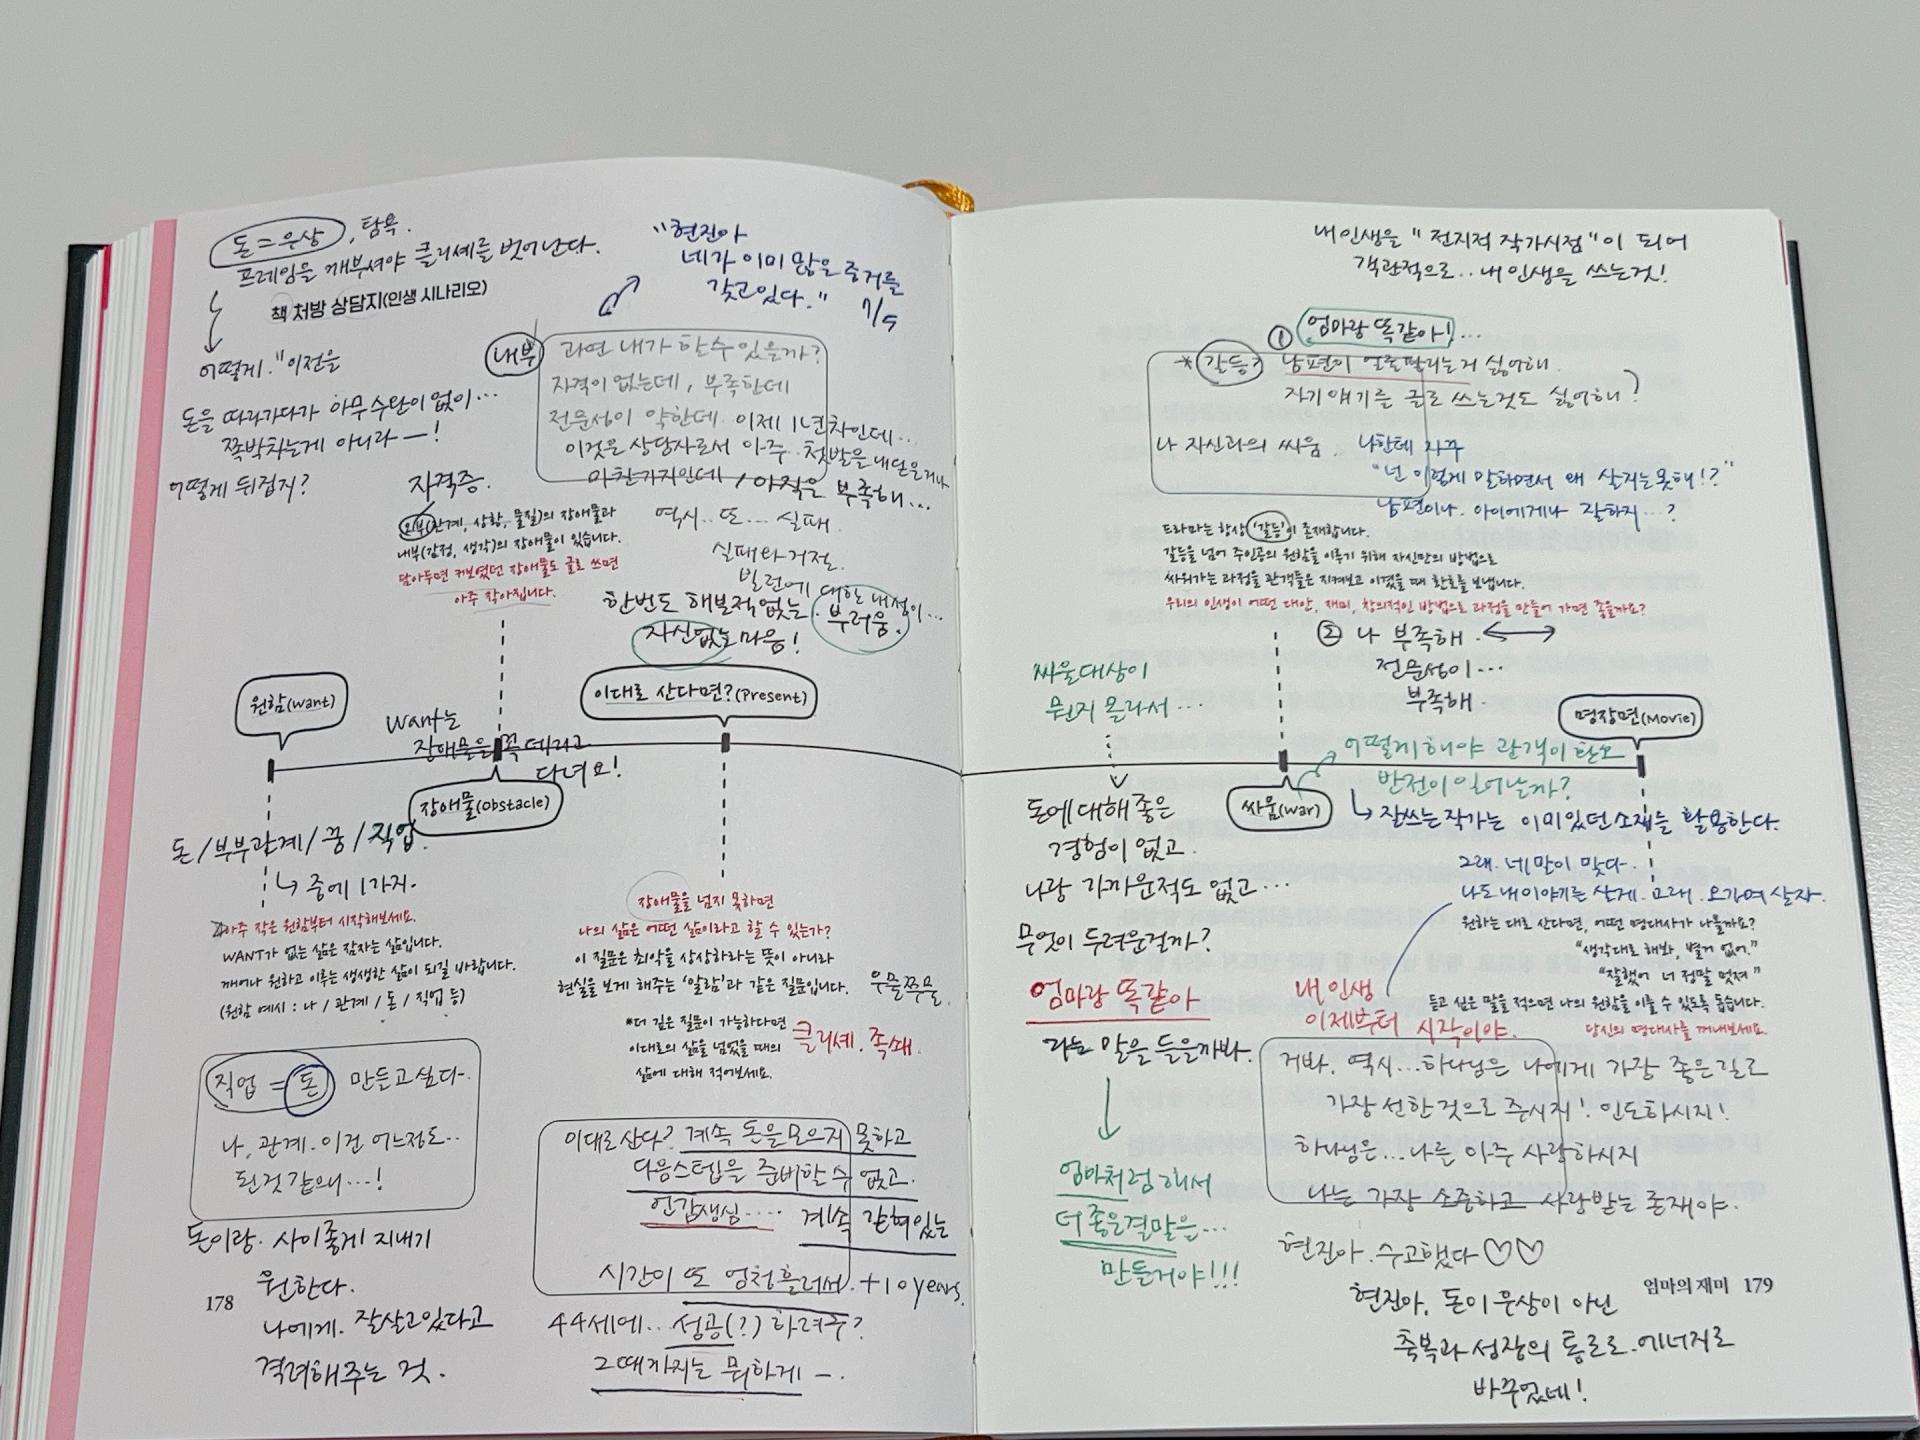 돈=우상, 탐욕.
프레임을 깨부셔야 클리셰를 벗어난다.
책 처방 상담지(인생 시나리오)
어떻게. "이전을
돈을 따라가다가 아무 수단이 없이...
쪽박차는게 아니라 —!
어떻게 뒤집지?
"현진아
네가 이미 많은 증거를
갖고있다."
내부
과연 내가 할수있을까?
자격이 없는데, 부족한데
전문성이 약한데. 이제 1년차인데...
이것은 상담사로서 아주 첫발을 내딛은거나
마찬가지인데 / 아직은 부족해...
역시.. 또... 실패.
실패와 거절.
빌런에 대한 내성이...
한번도 해본적없는. 부러움.
자신없는 마음!
자격증.
외부(관계, 상황, 물질)의 장애물과
내부(감정, 생각)의 장애물이 있습니다.
담아두면 커보였던 장애물도 글로 쓰면
아주 작아집니다.
원함(want)
want는
장애물을 꼭 데리고
다녀요!
장애물(obstacle)
이대로 산다면?(Present)
돈/부부관계/꿈/직업.
↳ 중에 1가지.
아주 작은 원함부터 시작해보세요.
WANT가 없는 삶은 잠자는 삶입니다.
깨어나 원하고 이루는 생생한 삶이 되길 바랍니다.
(원함 예시 : 나 / 관계 / 돈 / 직업 등)
직업 = 돈 만들고싶다.
나, 관계. 이건 어느정도..
된것 같으니...!
돈이랑. 사이좋게 지내기
원한다.
나에게. 잘살고있다고
격려해주는 것.
178
장애물을 넘지 못하면
나의 삶은 어떤 삶이라고 할 수 있는가?
이 질문은 최악을 상상하라는 뜻이 아니라
현실을 보게 해주는 '알람'과 같은 질문입니다.
우물쭈물.
*더 깊은 질문이 가능하다면
이대로의 삶을 넘었을 때의
삶에 대해 적어보세요.
클리셰. 족쇄.
이대로산다? 계속 돈을모으지 못하고
다음스텝을 준비할수 없고.
언감생심.... 계속 갇혀있는
시간이 또 엄청흘러서. +10years.
44세에... 성공(?) 하려주?
그때까지는 뭐하게 —.
내 인생을 "전지적 작가시점"이 되어
객관적으로.. 내 인생을 쓰는것!
① 엄마랑 똑같아!...
*갈등? 남편이 얼굴팔리는거 싫어해.
자기얘기를 글로 쓰는것도 싫어해?
나 자신과의 싸움. 나한테 자꾸
"넌 이렇게 말하면서 왜 살지는못해!?"
남편이나. 아이에게나 잘하지...?
드라마는 항상 '갈등'이 존재합니다.
갈등을 넘어 주인공의 원함을 이루기 위해 자신만의 방법으로
싸워가는 과정을 관객들은 지켜보고 이겼을 때 환호를 보냅니다.
우리의 인생이 어떤 대안, 재미, 창의적인 방법으로 과정을 만들어 가면 좋을까요?
② 나 부족해. ↔
전문성이...
부족해.
싸울대상이
뭔지 몰라서...
명장면(Movie)
싸움(war)
어떻게해야 관객이 환호
반전이일어날까?
↳ 잘쓰는작가는 이미있던소재를 활용한다.
돈에대해좋은
경험이 없고.
나랑 가까운적도 없고...
무엇이 두려운걸까?
엄마랑 똑같아
라는 말을 들을까봐.
엄마처럼해서
더 좋은결말은...
만들거야!!!
그래. 네말이 맞다.
나도 내이야기를 살게. 고래. 오기여 살자.
원하는 대로 산다면, 어떤 명대사가 나올까요?
"생각대로 해봐, 별거 없어."
"잘했어 너 정말 멋져"
듣고 싶은 말을 적으면 나의 원함을 이룰 수 있도록 돕습니다.
당신의 명대사를 꺼내보세요.
내 인생
이제부터 시작이야.
거봐. 역시...하나님은 나에게 가장 좋은길로
가장 선한것으로 주시지! 인도하시지!
하나님은...나를 아주 사랑하시지
나는 가장 소중하고 사랑받는 존재야.
현진아. 수고했다♡♡
엄마의 재미 179
현진아, 돈이 우상이 아닌
축복과 성장의 통로로. 에너지로
바꾸었네!